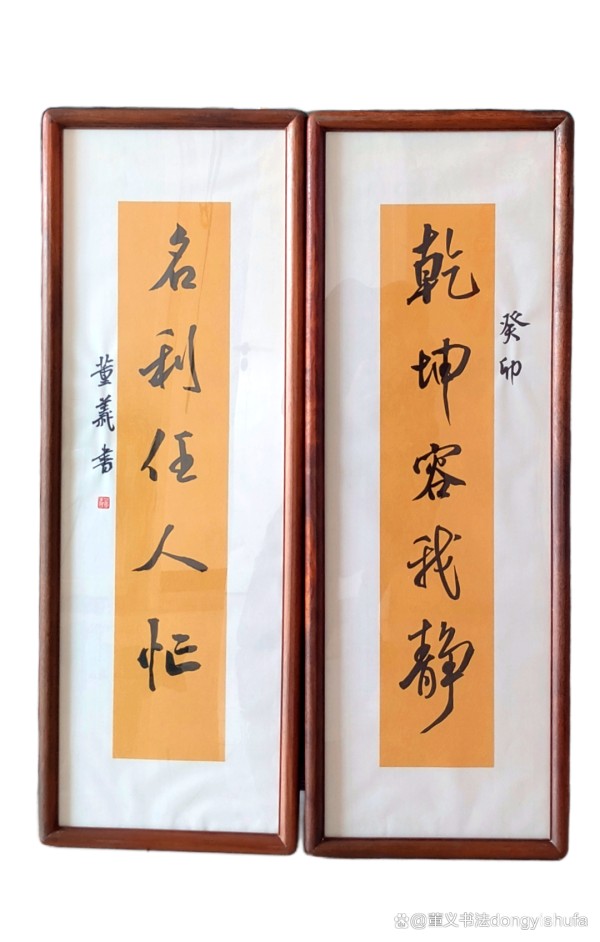 癸卯
乾坤容我静
名利任人忙
董義书
@董义书法dongyishufa